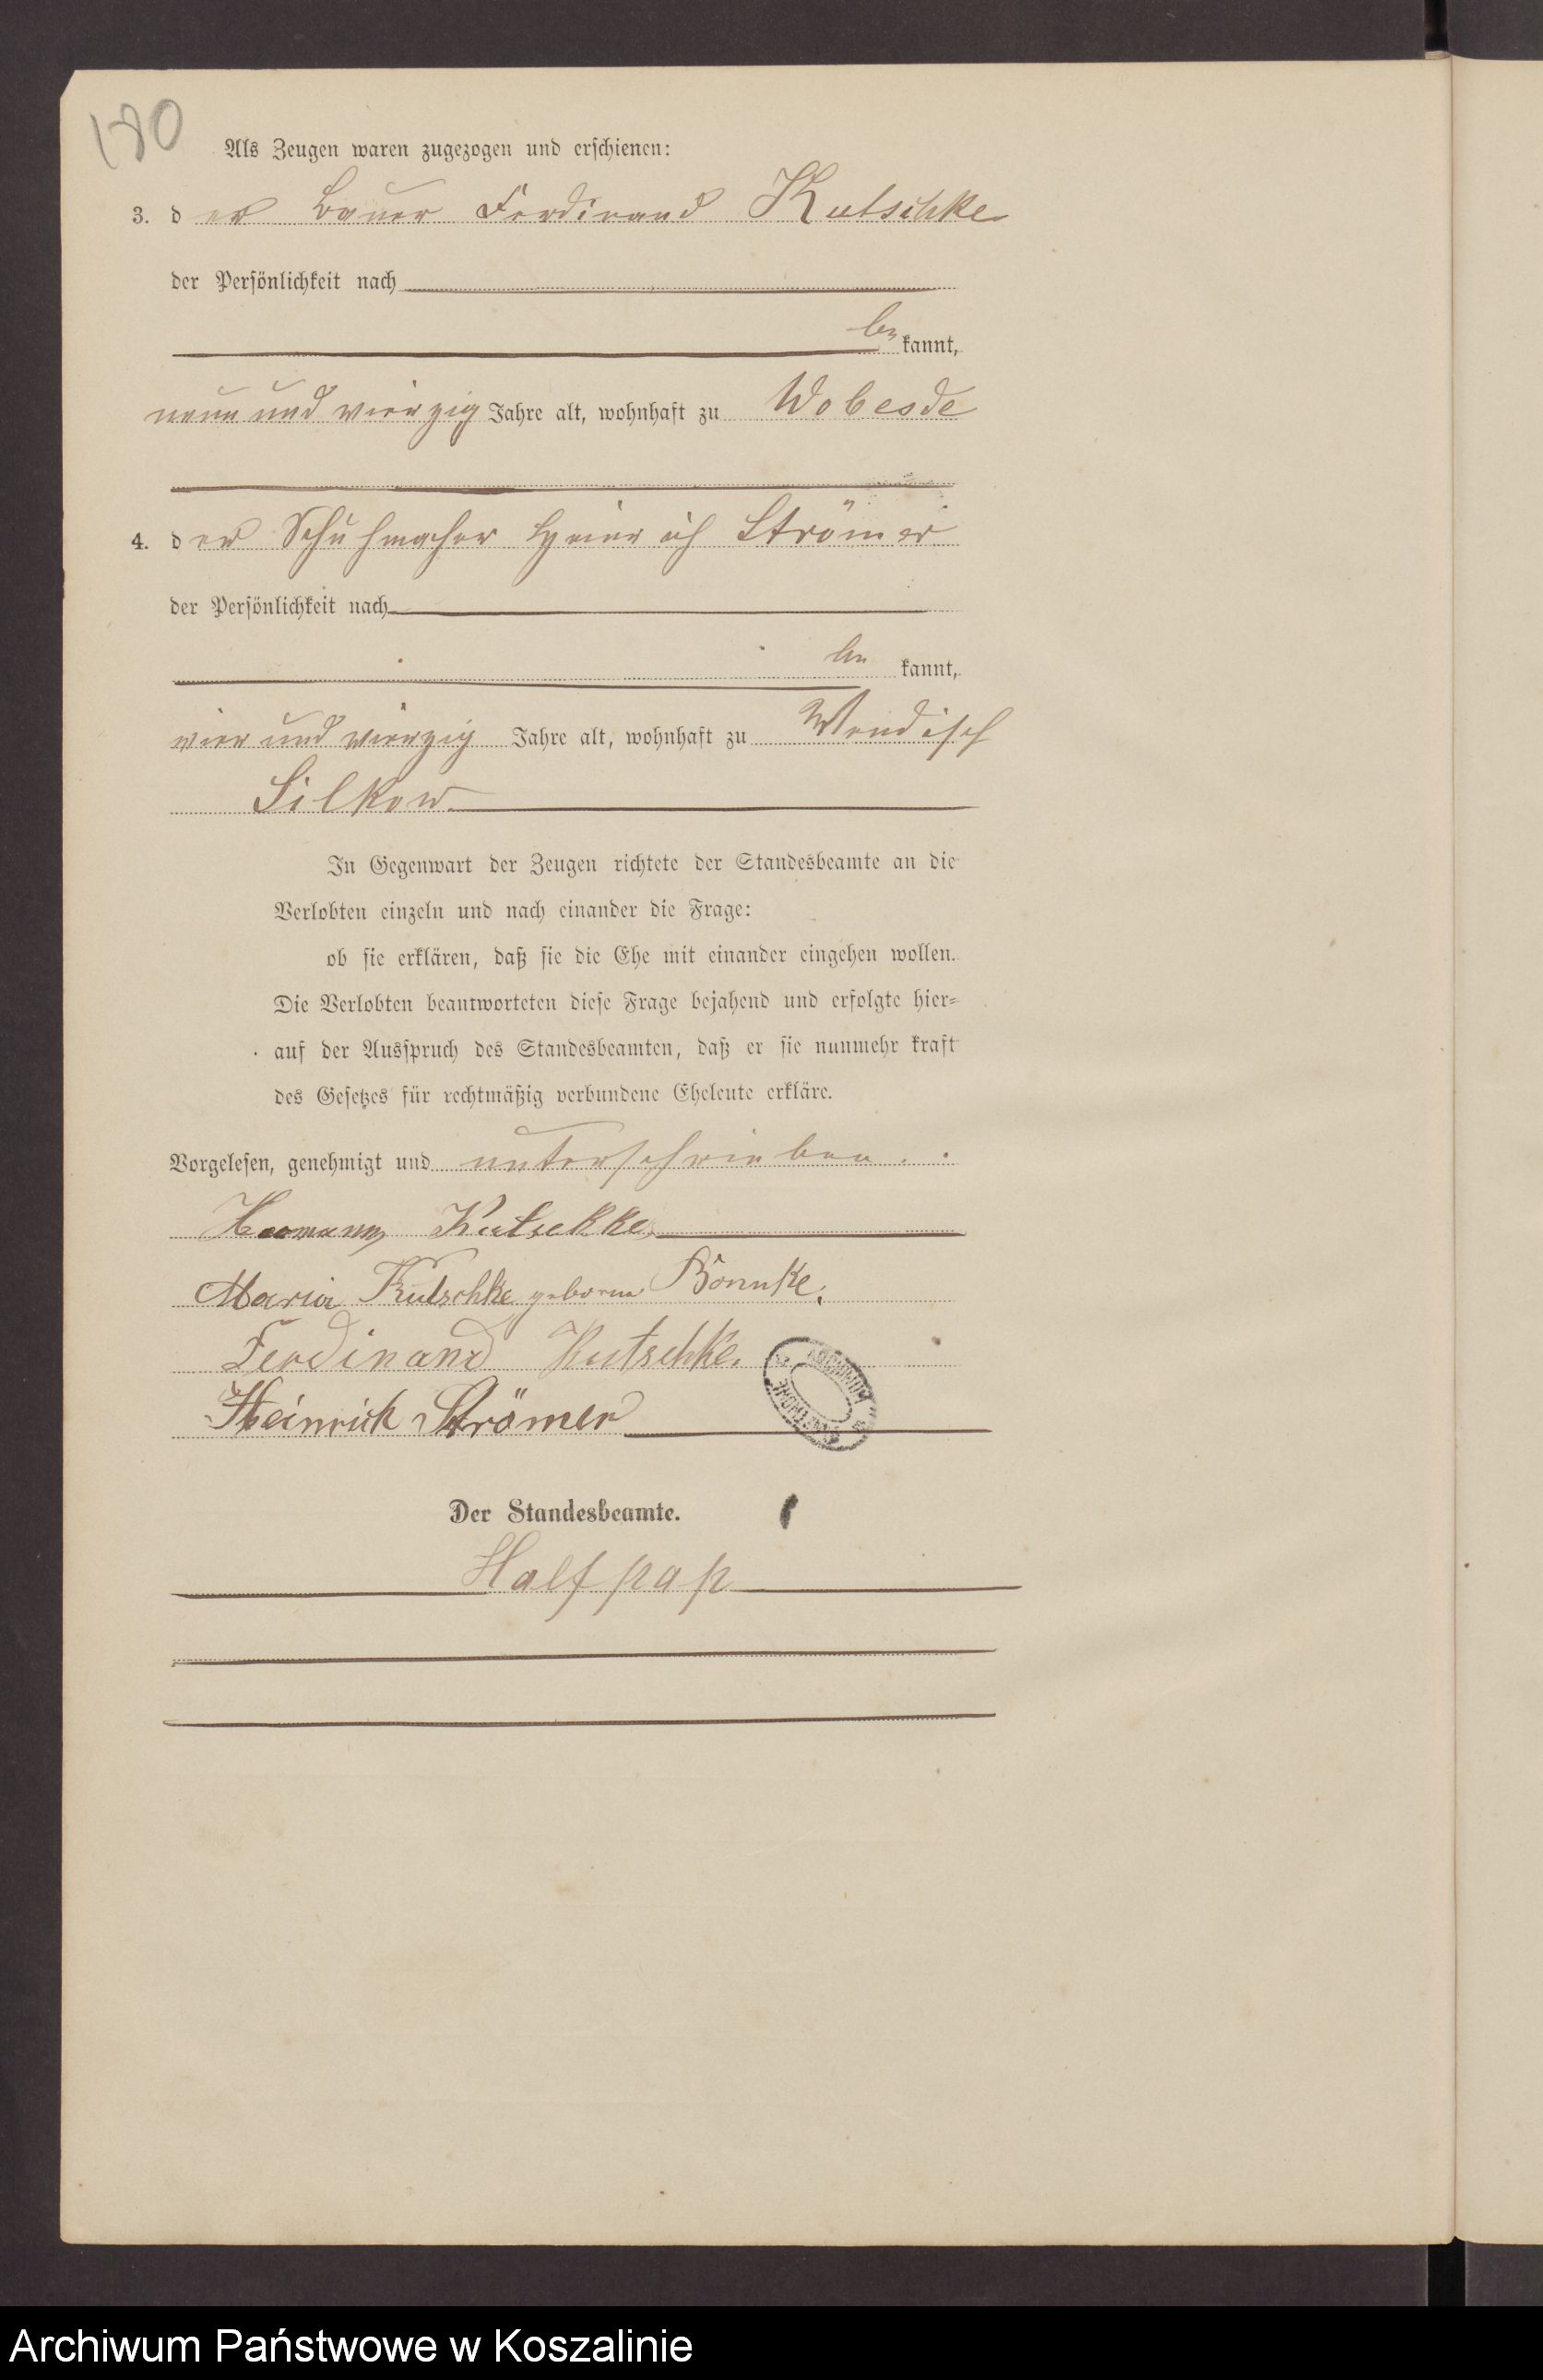 180
Als Zeugen waren zugezogen und erschienen:
3. der Bauer Ferdinand Kutschke
der Persönlichkeit nach
be kannt,
neun und vierzig Jahre alt, wohnhaft zu Wobesde
4. der Schuhmacher Heinrich Strömer
der Persönlichkeit nach
be kannt,
vier und vierzig Jahre alt, wohnhaft zu Wendisch
Silkow
In Gegenwart der Zeugen richtete der Standesbeamte an die
Verlobten einzeln und nach einander die Frage:
ob sie erklären, daß sie die Ehe mit einander eingehen wollen.
Die Verlobten beantworteten diese Frage bejahend und erfolgte hier-
auf der Ausspruch des Standesbeamten, daß er sie nunmehr kraft
des Gesetzes für rechtmäßig verbundene Eheleute erkläre.
Vorgelesen, genehmigt und unterschrieben.
Hermann Kutschke
Maria Kutschke geborne Bonnke.
Ferdinand Kutschke.
Heinrich Strömer
Der Standesbeamte.
Halfpap
Archiwum Państwowe w Koszalinie